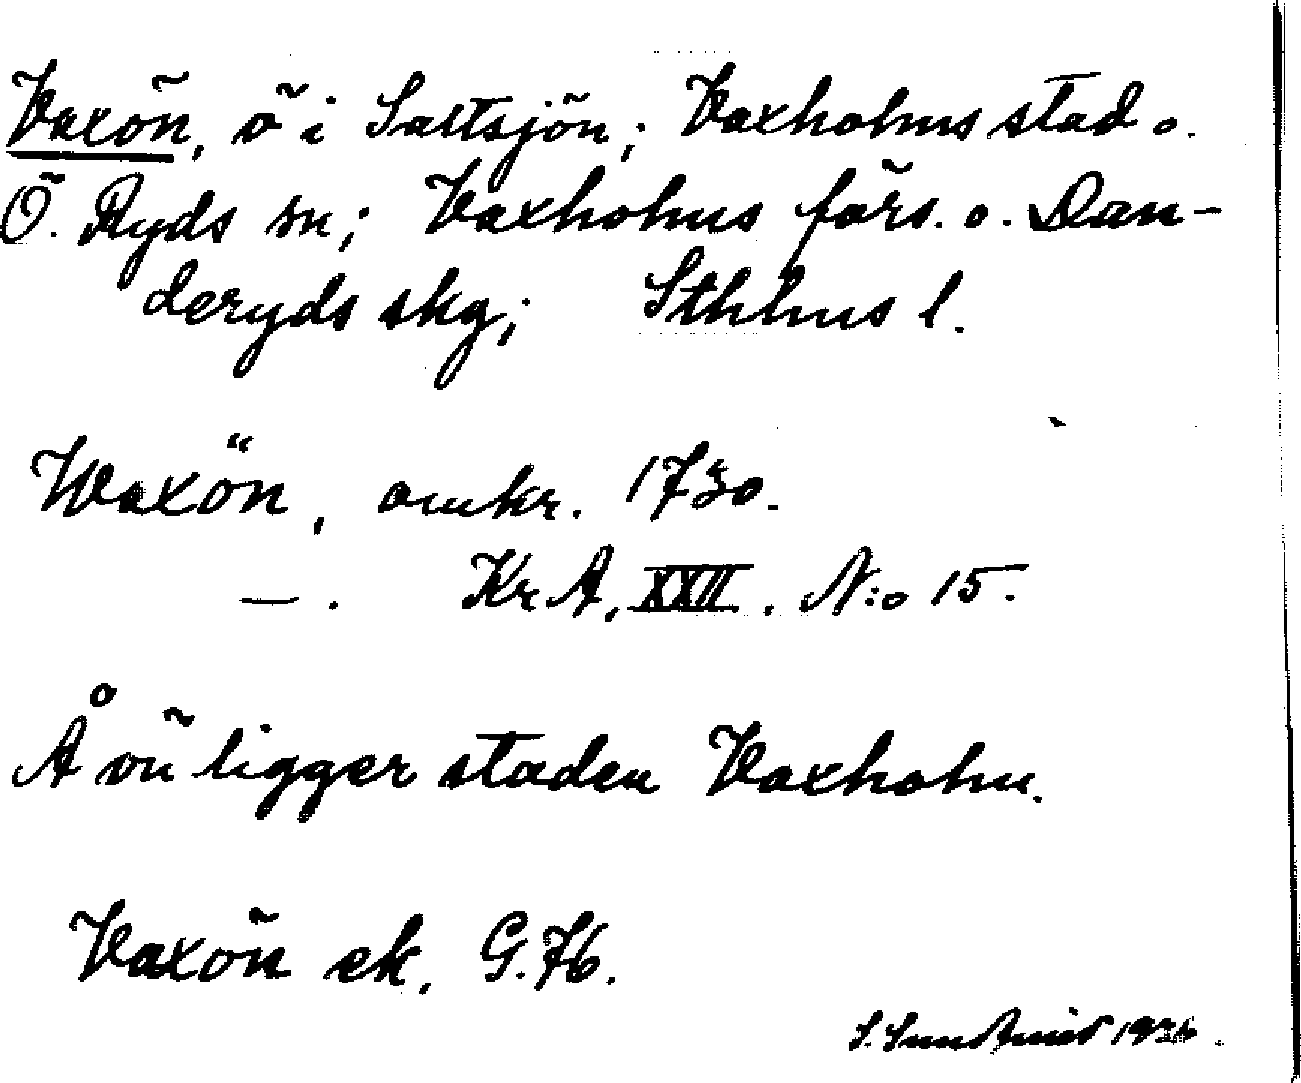 Vaxön, ö i Saltsjön; Vaxholms stad o.
Ö. Ryds sn; Vaxholms förs. o. Dan-
deryds skg; Sthlms l.
Waxön, omkr. 1730.
— . Kr A, XXII. N:o 15.
Å ön ligger staden Vaxholm.
Vaxön ek. G. 76.
S. 1926.